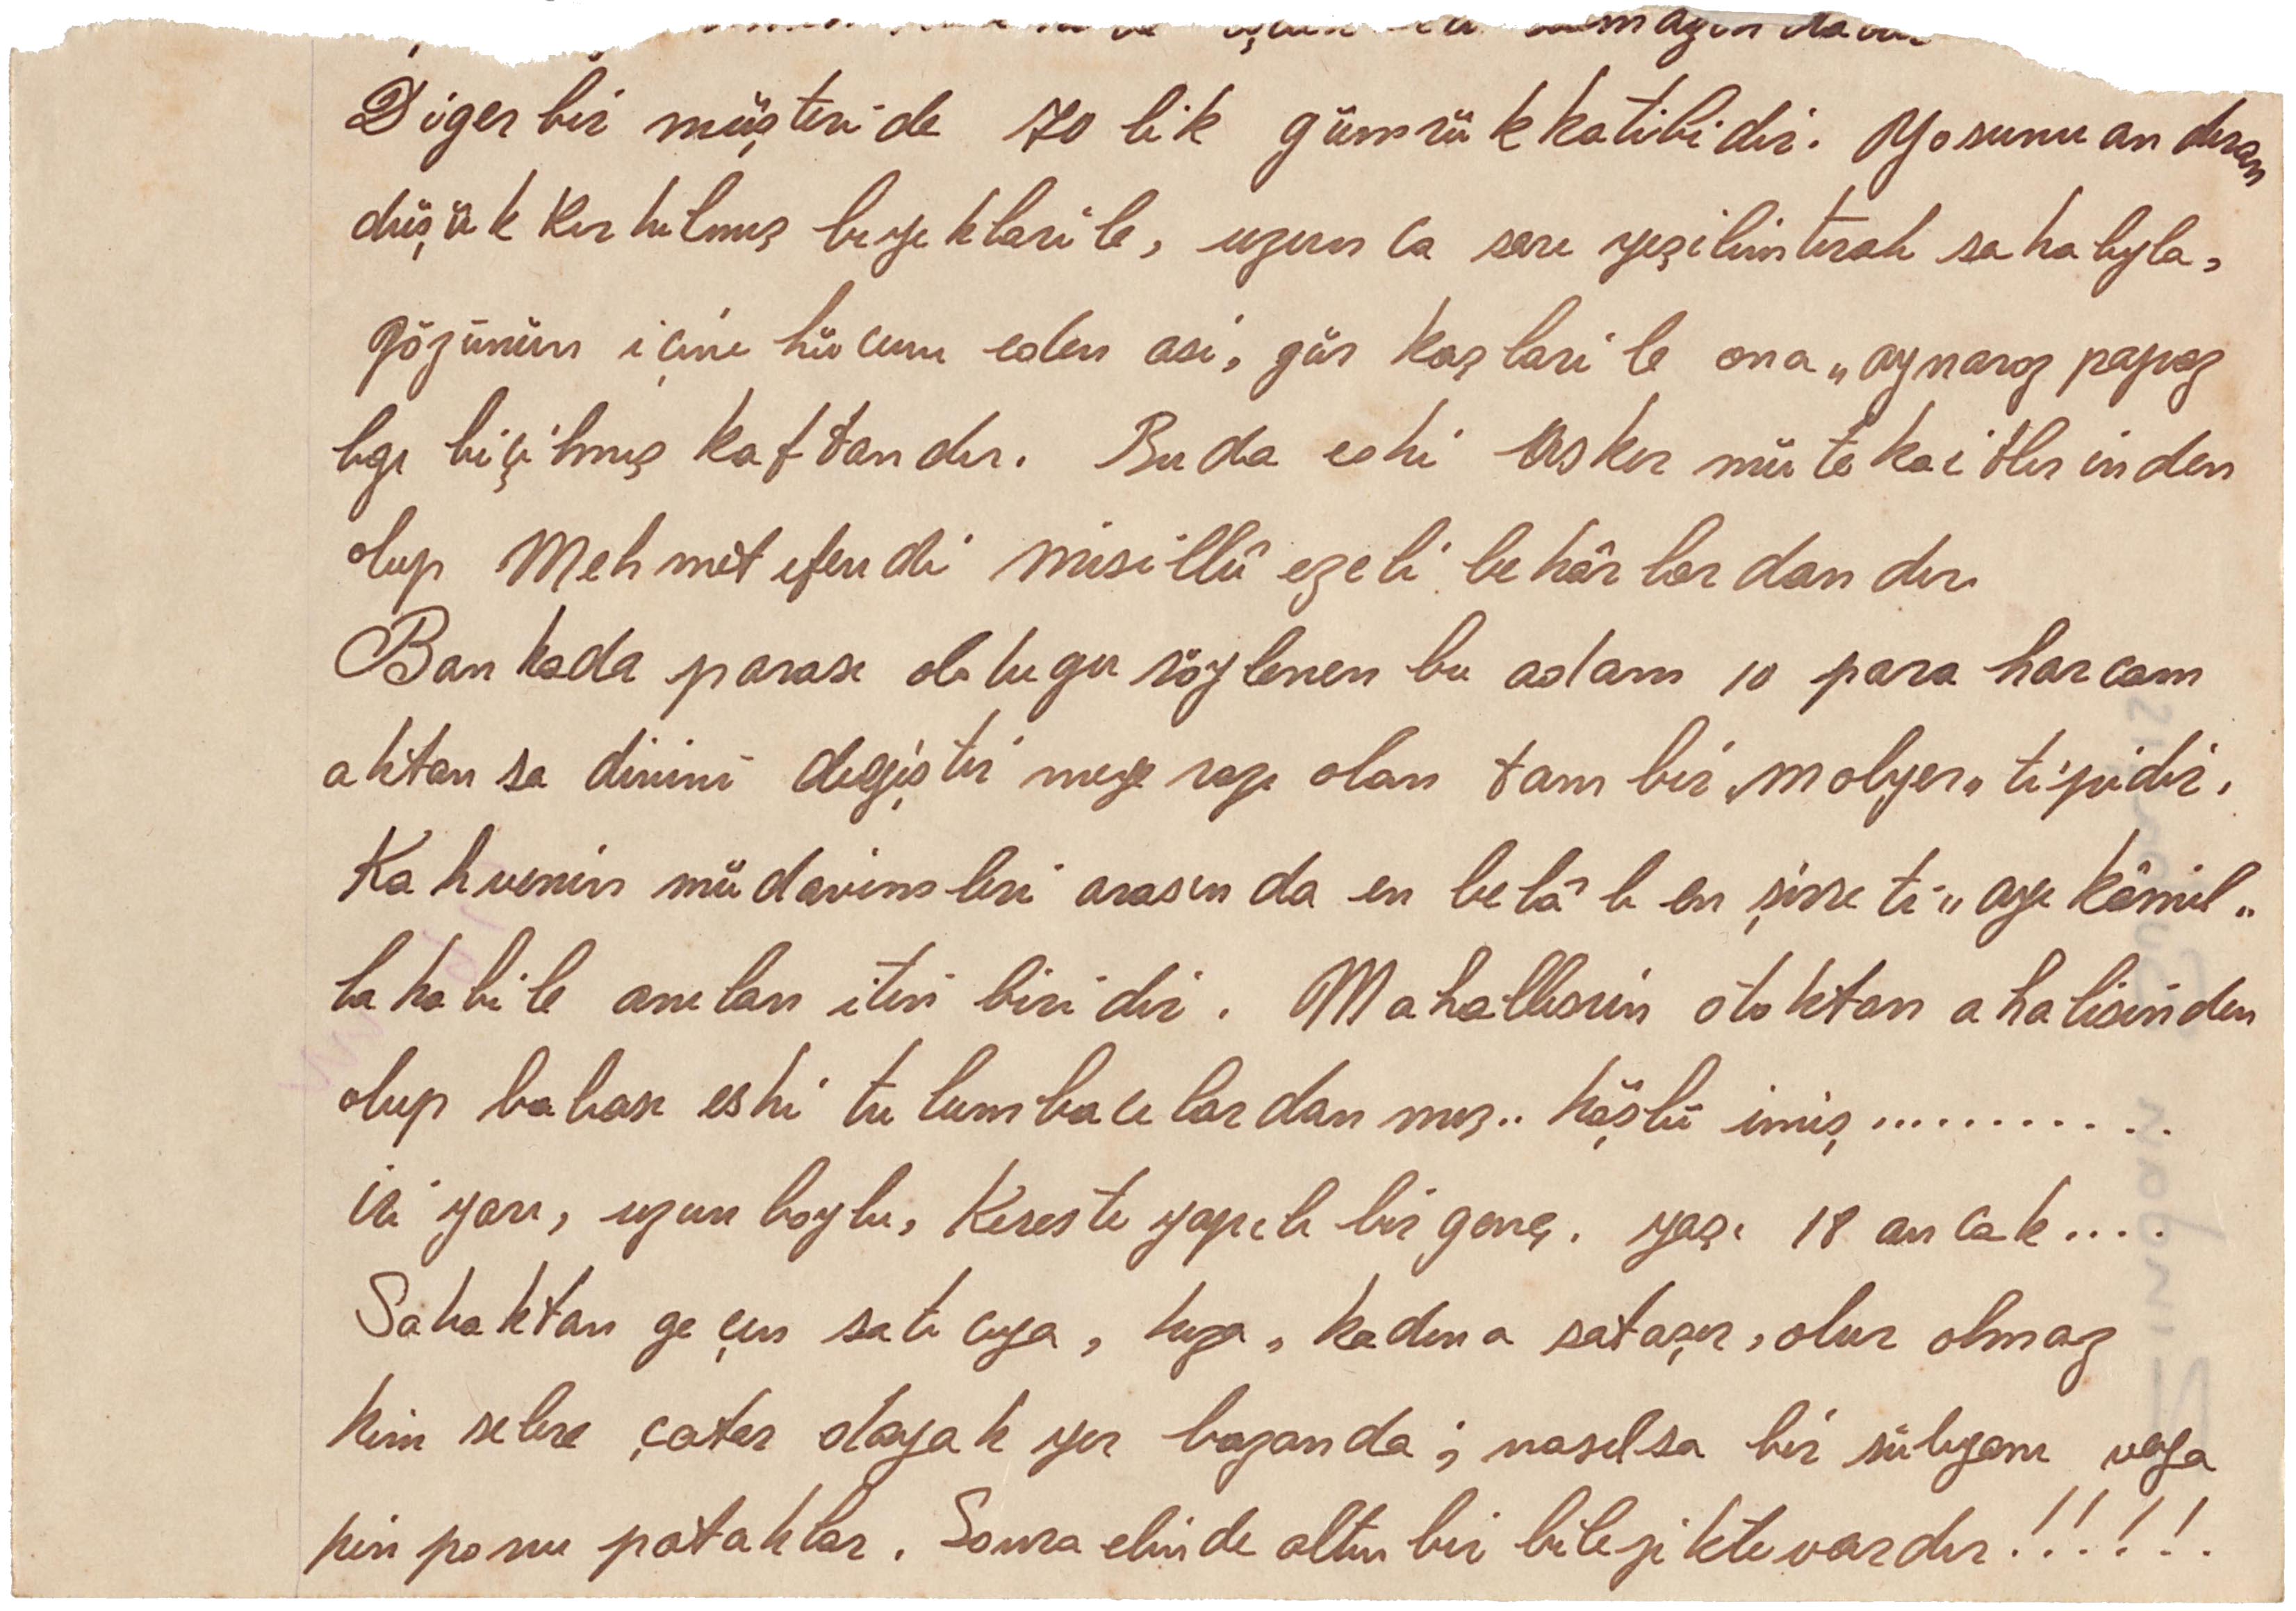 Diger bir müşteride 70 lik gümrük katibidir. Yosunu andıran
düşük kırkılmış bıyıklarile, uzunca sarı yeşilimtırak sakalıyla,
gözünün içine hücum eden asi, gür kaşlarile ona „aynaroz papaz
lıgı biçilmiş kaftandır. Buda eski Asker mütekaitlerinden
olup Mehmet efendi misillû ezeli bekârlardandır.
Bankada parası oldugu söylenen bu adam 10 para harcam
aktansa dinini degiştirmeye razı olan tam bir „molyer„ tipidir.
Kahvenin müdavimleri arasında en belâlı en şirreti „ayı kâmil„
lakabile anılan iteri biridir. Mahallesinin ötoktan ahalisinden
olup babası eski tulumbacılardanmış.. köşlü imiş..........
İri yarı, uzun boylu, Kereste yapılı bir genç. yaşı 18 ancak....
Sokaktan geçen satıcıya, kıza, kadına sataşır, olur olmaz
kimselere çatar dayak yer bazanda; nasılsa bir sübyanı veya
pinponu pataklar. Sonra elinde altın bir bilezikte vardır!!!!!